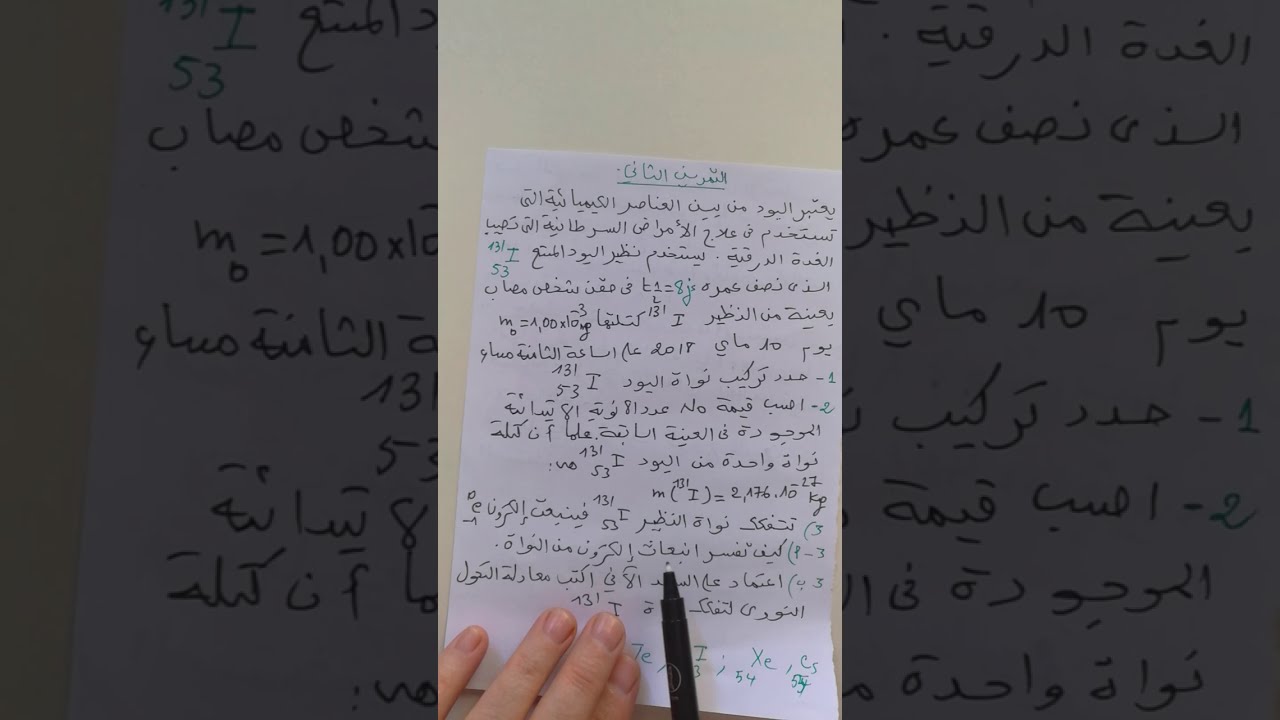 التمرين الثاني.
يعتبر اليود من بين العناصر الكيميائية التي
تستخدم في علاج الأمراض السرطانية التي تصيب
الغدة الدرقية . يستخدم نظير اليود المشع ¹³¹₅₃I
الذي نصف عمره t½=8j في حقن شخص مصاب
بعينة من النظير ¹³¹I كتلتها m₀=1,00x10⁻³g
يوم 10 ماي 2018 على الساعة الثامنة مساء
1- حدد تركيب نواة اليود ¹³¹₅₃I
2- احسب قيمة N₀ عدد الأنوية الابتدائية
الموجودة في العينة السابقة. علما أن كتلة
نواة واحدة من اليود ¹³¹₅₃I هي:
m(¹³¹I) = 2,176.10⁻²⁷ kg
3) تتفكك نواة النظير ¹³¹₅₃I فينبعث إلكترون ⁰₋₁e
3-أ) كيف تفسر انبعاث إلكترون من النواة.
3 ب) اعتماد على السند الآتي اكتب معادلة التحول
النووي لتفكك نواة ¹³¹I
Te, I ; ₅₄Xe , Cs